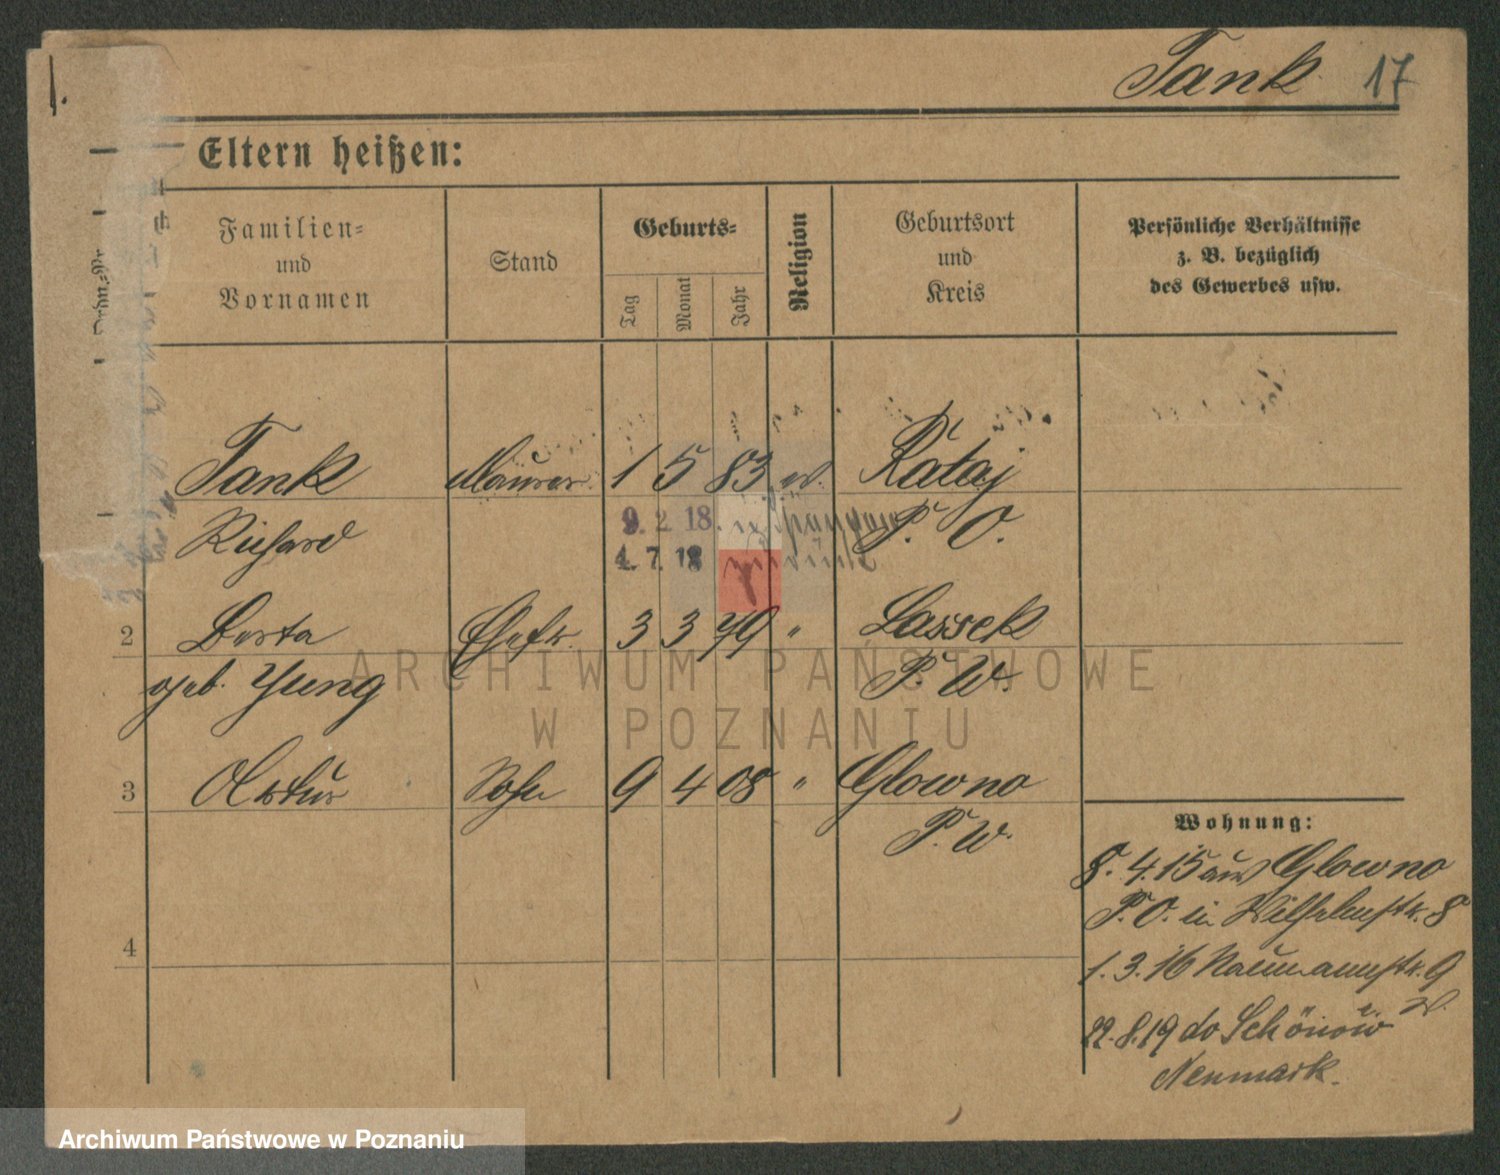 1.
Tank 17
Eltern heißen:
Familien- und Vornamen
Stand
Geburts-
Tag
Monat
Jahr
Religion
Geburtsort und Kreis
Persönliche Verhältnisse
z. B. bezüglich
des Gewerbes usw.
Tank Maurer 1 5 83 ev. Rataj
Richard 9. 2. 18. P. O.
4. 7. 18
2 Berta Ehefr. 3 3 79 " Lassek
geb. Jung P. W.
3 Artur Sohn 9 4 08 " Glowno
P. W.
4
Wohnung:
8. 4. 15 aus Glowno
P. O. in Wilhelmstr. 8
1. 3. 16 Naumannstr. 9
22. 8. 19 do Schönow
Neumark.
ARCHIWUM PAŃSTWOWE
W POZNANIU
Archiwum Państwowe w Poznaniu